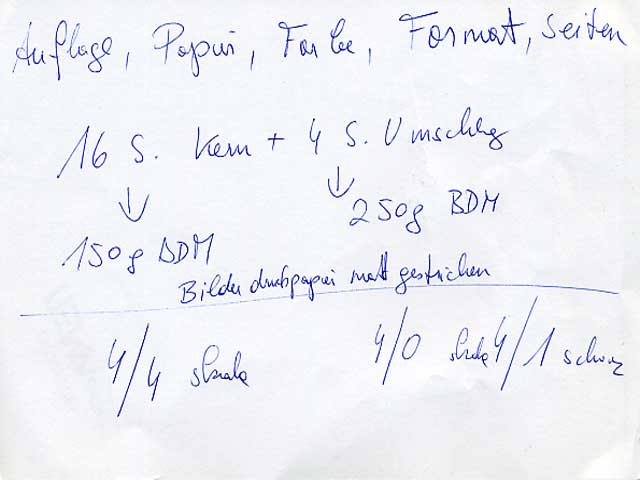 Auflage, Papier, Farbe, Format, Seiten
16 S. Kern + 4 S. Umschlag
↓ ↓
150g BDM 250g BDM
Bilderdruckpapier matt gestrichen
4/4 skala 4/0 skala 4/1 schwarz